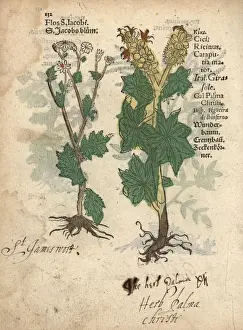 152
Flos S. Jacobi.
S. Jacobs blům.
Kiki
Cici.
Ricinus.
Catapu
tia ma-
ior.
Ital. Giras
sole.
Gal. Palma
Christi.
Wunder-
baum.
Creutzbaū.
Zeckenkör-
ner.
St Jameswort.
The herb Palma Christi
Herb Palma
christi